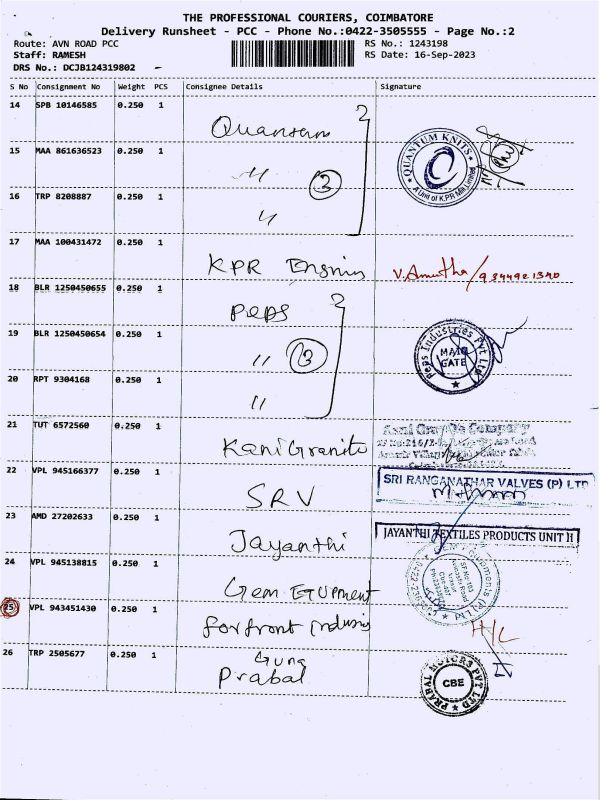 THE PROFESSIONAL COURIERS, COIMBATORE
Delivery Runsheet - PCC - Phone No.:0422-3505555 - Page No.:2
Route: AVN ROAD PCC
Staff: RAMESH
DRS No.: DCJB124319802
RS No.: 1243198
RS Date: 16-Sep-2023
S No Consignment No Weight PCS Consignee Details Signature
14 SPB 10146585 0.250 1 Quantum
QUANTUM KNITS
A Unit of K.P.R Mill Limited
15 MAA 861636523 0.250 1 〃 3
16 TRP 8208887 0.250 1 〃
17 MAA 100431472 0.250 1 KPR V. Amutha/
18 BLR 1250450655 0.250 1 Peps
19 BLR 1250450654 0.250 1 〃 3
Peps Industries Pvt Ltd
MAIN GATE
20 RPT 9304168 0.250 1 〃
21 TUT 6572560 0.250 1 Kani Granite
22 VPL 945166377 0.250 1 SRV
SRI RANGANATHAR VALVES (P) LTD
23 AMD 27202633 0.250 1 Jayanthi
JAYANTHI TEXTILES PRODUCTS UNIT II
24 VPL 945138815 0.250 1 Gem EQUPment
25 VPL 943451430 0.250 1 forfront H/L
26 TRP 2505677 0.250 1 Guna
Prabal
PRABAL MOTORS PVT LTD
CBE